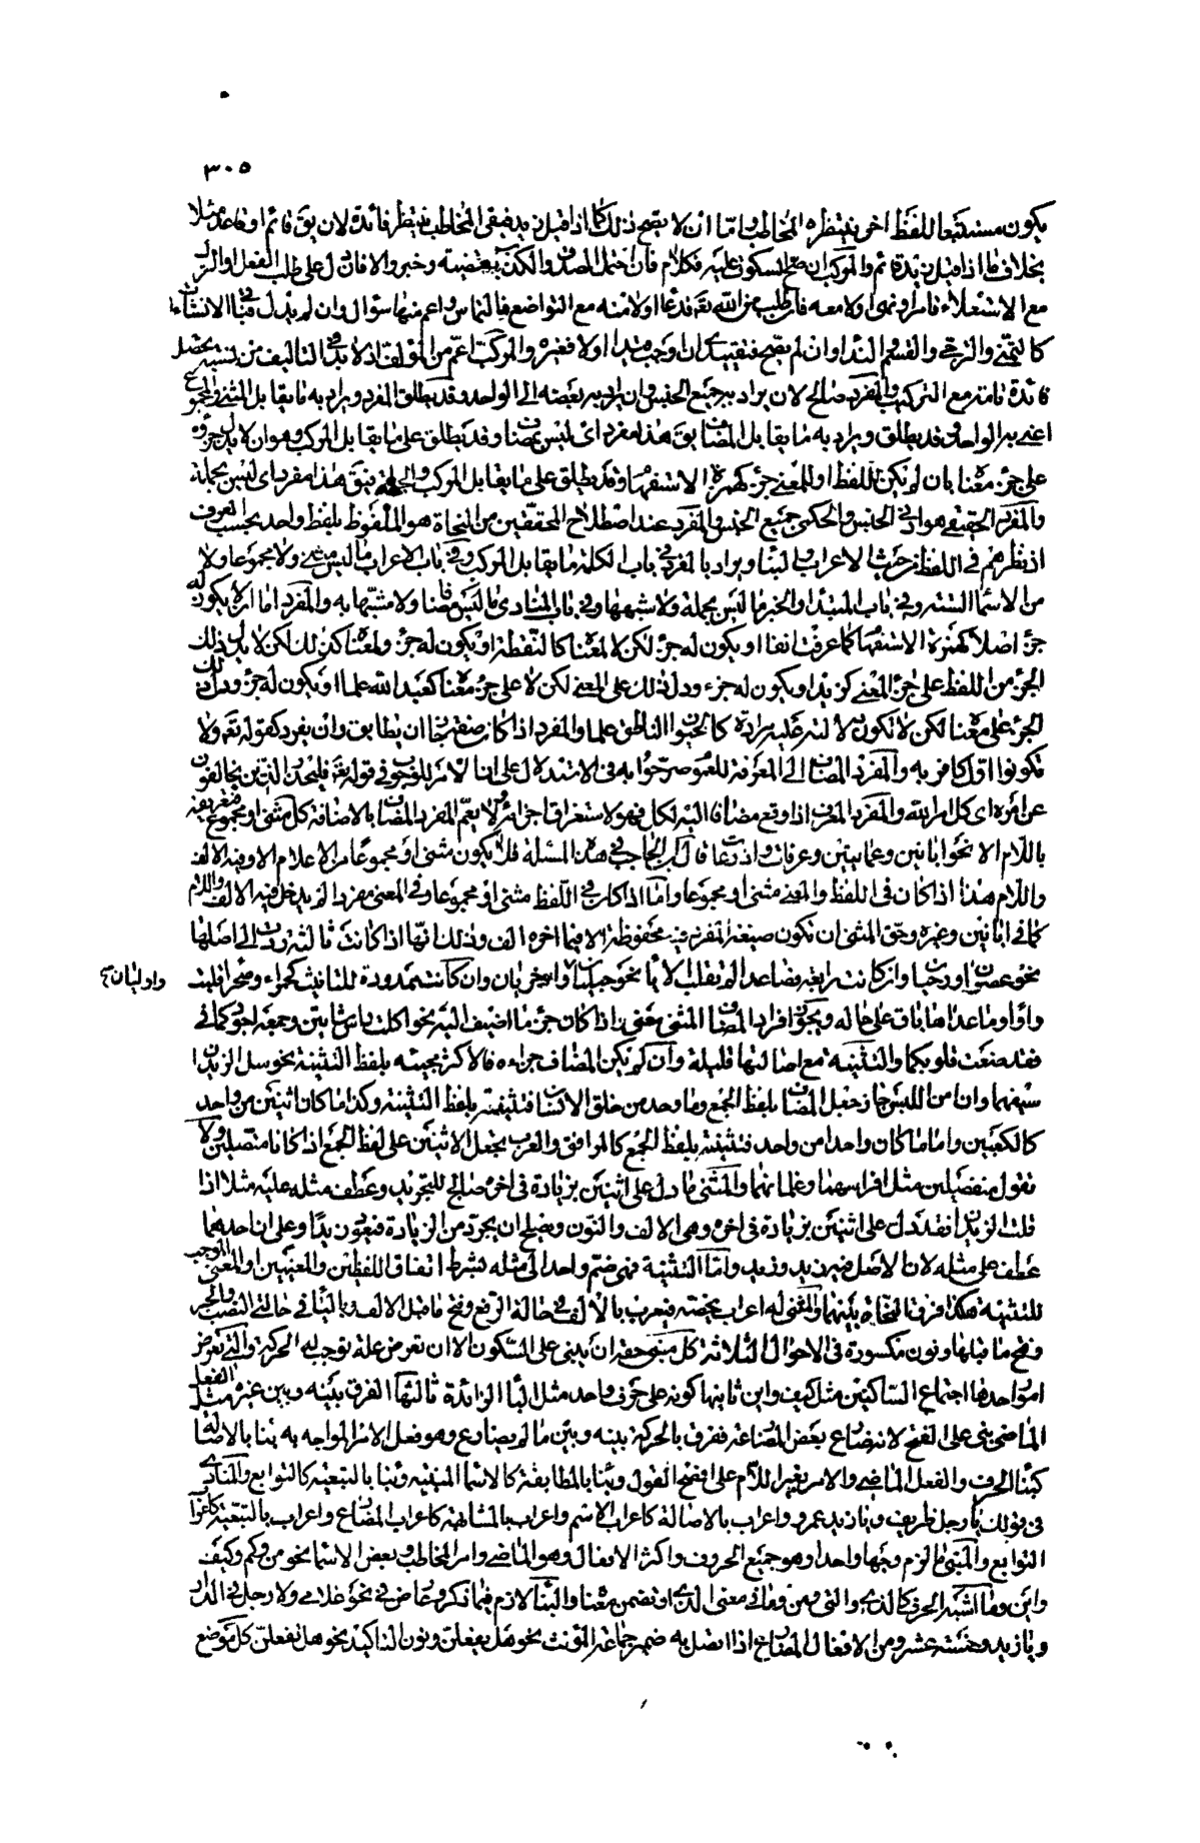 ٣٠٥
يكون مستتبعا للفظ اخر ينتظره المخاطب واما ان لا يصح ذلك كما اذا قيل زيد فيبقى المخاطب ينتظر فائدة لان يق قائم او قاعد مثلا
بخلاف ما اذا قيل زيد قائم والمركب ان صح السكوت عليه فكلام فان احتمل الصدق والكذب فقضية وخبر والا فان دل على طلب الفعل او الترك
مع الاستعلاء فامر او نهى اولا معه فان طلب من الله تعه فدعا اولا منه مع التواضع فالتماس واعم منها سؤال وان لم يدل فتا الانشات
كالتمني والترجي والقسم والندا وان لم يصح فتقييدى ان وجب قيدا اولا فغيره والمركب اعم من المؤلف اذ لا بد في التاليف من نسبة يحصل
فائدة تامة مع التركيب والمفرد صالح لان يراد به جميع الجنس وان يراد به بعضه الى الواحد وقد يطلق المفرد ويراد به ما يقابل المثنى والمجموع
اعنى به الواحد وقد يطلق ويراد به ما يقابل المضاف يق هذا مفرد اى ليس بمضاف وقد يطلق على ما يقابل المركب وهو ان لا يدل جزؤه
على جزء معناه بان لم يكن للفظ او للمعنى جزء كهمزة الاستفهام وقد يطلق على ما يقابل المركب والجملة فيق هذا مفرد اى ليس بجملة
والمفرد الحقيقى هو ادنى الجنس والحكمى جميع الجنس والمفرد عند اصطلاح المحققين من النحاة هو الملفوظ بلفظ واحد بحسب العرف
اذ نظرهم فى اللفظ من حيث الاعراب والبنا ويراد بالمفرد في باب الكلمة ما يقابل المركب وفي باب الاعراب ما ليس مثنى ولا مجموعا ولا
من الاسما الستة وفي باب المبتدا والخبر ما ليس بجملة ولا شبهها وفي باب المنادى ما ليس مضافا ولا مشبها به والمفرد اما ان لا يكون له
جزء اصلا كهمزة الاستفهام كما عرفت انفا او يكون له جزء لكن لا لمعناه كالنقطة او يكون له جزء ولمعناه كذلك لكن لا يدل ذلك
الجزء من اللفظ على جزء المعنى كزيد او يكون له جزء ودل ذلك على المعنى لكن لا على جزء معناه كعبد الله علما او يكون له جزء ودل ذلك
الجزء على معناه لكن لا تكون دلالته عليه مرادة كالحيوان الناطق علما والمفرد اذا كان صفة جاز ان يطابق وان يفرد كقوله تعه ولا
تكونوا اول كافر به والمفرد المضاف الى المعرفة للعموم صرحوا به فى الاستدلال على ان الامر للوجوب في قوله تعه فليحذر الذين يخالفون
عن امره اى كل امر لله والمفرد المعرف اذا وقع مضافا اليه لكل فهو لاستغراق اجزائه ولا يعم المفرد المضاف بالاضافة كل مثنى او مجموع فتعريفه
باللام الا نحو ابانين وعمايتين وعرفات واذرعات قال ابن الحاجب في هذه المسئلة فلا يكون مثنى او مجموعا من الاعلام الا وفيه الالف
واللام هذا اذا كان فى اللفظ والمعنى مثنى او مجموعا واما اذا كان في اللفظ مثنى او مجموعا وفي المعنى مفردا لم يدخل فيه الالف واللام
كما في ابانين وغيره وحق المثنى ان تكون صيغة المفرد فيه محفوظة الا فيما اخره الف وذلك انها اذا كانت ثالثة ردت الى اصلها
نحو عصوان ورحيان وان كانت رابعة فصاعدا لم تقلب الا يا نحو حبليان واخريان وان كانت ممدودة للتانيث كحمراء وصحراء قلبت
واوليان صح
واوا وما عداها باق على حاله ويجوز افراد المضاف المثنى معنى اذا كان جزء ما اضيف اليه نحو اكلت راس شاتين وجمعه اجود كما في
فقد صغت قلوبكما والتثنية مع اصالتها قليلة وان لم يكن المضاف جزءه فالاكثر مجيئه بلفظ التثنية نحو سل الزيدان
سيفيهما وان امن اللبس جاز جعل المضاف بلفظ الجمع وما وحد من خلق الانسان فتثنيته بلفظ التثنية وكذا ما كان اثنين من واحد
كالكعبين واما ما كان واحدا من واحد فتثنيته بلفظ الجمع كالمرافق والعرب يجعل الاثنين على لفظ الجمع اذا كانا متصلين ولا
تقول منفصلين مثل افراسهما وغلمانهما والمثنى ما دل على اثنين بزيادة فى اخره صالح للتجريد وعطف مثله عليه مثلا اذا
قلت الزيدان فقد دل على اثنين بزيادة فى اخره وهى الالف والنون ويصلح ان يجرد من الزيادة فتقول زيدا وعلى ان احدهما
عطف على مثله لان الاصل فيه زيد وزيد واما التثنية فهى ضم واحد الى مثله بشرط اتفاق اللفظين والمعنيين او المعنى الموجب
للتثنية هكذا فرق النحاة بينهما والمثنى له اعراب يخصه فيعرب بالالف في حالة الرفع وفتح ما قبل الالف وباليا في حالتى النصب والجر
وفتح ما قبلها ونون مكسورة فى الاحوال الثلاثة كل مبنى حقه ان يبنى على السكون الا ان تعرض علة توجب له الحركة والتى تعرض
امور احدها اجتماع الساكنين مثل كيف واين ثانيها كونه على حرف واحد مثل البا الزائدة ثالثها الفرق بينه وبين غيره مثل الفعل
الماضى بنى على الفتح لانه ضارع بعض المضارعة ففرق بالحركة بينه وبين ما لم يضارع وهو فعل الامر المواجه به بنا بالاصالة
كبنا الحرف والفعل الماضى والامر بغير اللام على افصح القول وبنا بالمطابقة كالاسما المبنية وبنا بالتبعية كالتوابع والمنادى
فى قولك يا رجل ظريف ويا زيد عمرو واعراب بالاصالة كاعراب الاسم واعراب بالمشابهة كاعراب المضارع واعراب بالتبعية كاعراب
التوابع والمبنى ما لزم وجها واحدا وهو جميع الحروف واكثر الافعال وهو الماضى وامر المخاطب وبعض الاسما نحو من وكم وكيف
واين وما اشبه الحرف كالذى والتى ومن وما في معنى الذى او تضمن معناه والبنا لازم فيما ذكر وعارض في نحو غلامى ولا رجل في الدار
ويا زيد وخمسة عشر ومن الافعال المضارع اذا اتصل به ضمير جماعة المؤنث نحو هل يفعلن ونون التاكيد نحو هل تفعلن كل موضع